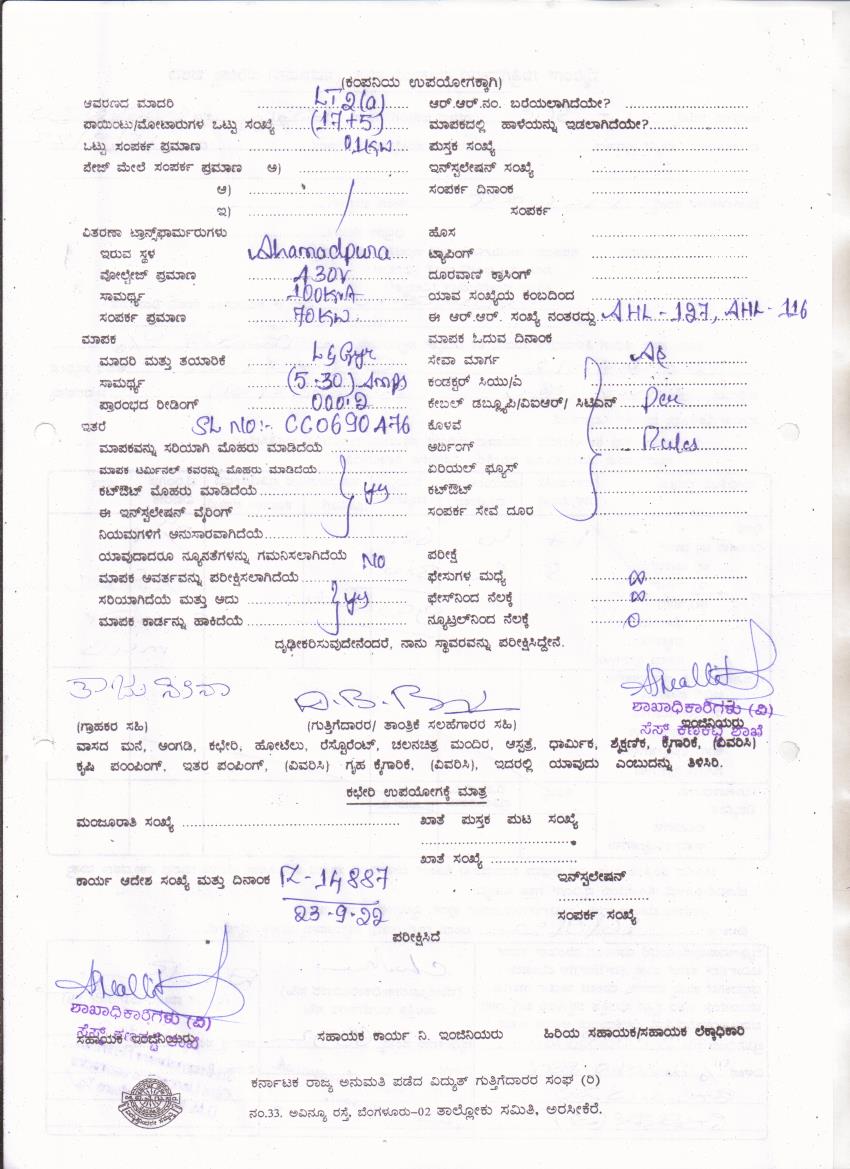 (ಕಂಪನಿಯ ಉಪಯೋಗಕ್ಕಾಗಿ)
ಆವರಣದ ಮಾದರಿ LT 2(a) ಆರ್.ಆರ್.ನಂ. ಬರೆಯಲಾಗಿದೆಯೇ?
ಪಾಯಿಂಟು/ಮೋಟಾರುಗಳ ಒಟ್ಟು ಸಂಖ್ಯೆ (17+5) ಮಾಪಕದಲ್ಲಿ ಹಾಳೆಯನ್ನು ಇಡಲಾಗಿದೆಯೇ?
ಒಟ್ಟು ಸಂಪರ್ಕ ಪ್ರಮಾಣ 01KW ಪುಸ್ತಕ ಸಂಖ್ಯೆ
ಪೇಜ್ ಮೇಲೆ ಸಂಪರ್ಕ ಪ್ರಮಾಣ ಅ) ಇನ್‌ಸ್ಟಲೇಷನ್ ಸಂಖ್ಯೆ
ಆ) ಸಂಪರ್ಕ ದಿನಾಂಕ
ಇ) ಸಂಪರ್ಕ
ವಿತರಣಾ ಟ್ರಾನ್ಸ್‌ಫಾರ್ಮರುಗಳು ಹೊಸ
ಇರುವ ಸ್ಥಳ Ahamadpura ಟ್ಯಾಪಿಂಗ್
ವೋಲ್ಟೇಜ್ ಪ್ರಮಾಣ 430V ದೂರವಾಣಿ ಕ್ರಾಸಿಂಗ್
ಸಾಮರ್ಥ್ಯ 100KVA ಯಾವ ಸಂಖ್ಯೆಯ ಕಂಬದಿಂದ
ಸಂಪರ್ಕ ಪ್ರಮಾಣ 70KW ಈ ಆರ್.ಆರ್. ಸಂಖ್ಯೆ ನಂತರದ್ದು AHL-127, AHL-116
ಮಾಪಕ ಮಾಪಕ ಓದುವ ದಿನಾಂಕ
ಮಾದರಿ ಮತ್ತು ತಯಾರಿಕೆ L&Gyr ಸೇವಾ ಮಾರ್ಗ
ಸಾಮರ್ಥ್ಯ (5-30) Amps ಕಂಡಕ್ಟರ್ ಸಿಯು/ಎ
ಪ್ರಾರಂಭದ ರೀಡಿಂಗ್ 000.2 ಕೇಬಲ್ ಡಬ್ಲ್ಯೂಪಿ/ವಿಐಆರ್/ ಸಿಟಿಎಸ್ Per
ಇತರೆ SL NO:- CC0690476 ಕೊಳವೆ
ಮಾಪಕವನ್ನು ಸರಿಯಾಗಿ ಮೊಹರು ಮಾಡಿದೆಯೆ ಅರ್ಥಿಂಗ್ Rules
ಮಾಪಕ ಟರ್ಮಿನಲ್ ಕವರನ್ನು ಮೊಹರು ಮಾಡಿದೆಯೆ ಏರಿಯಲ್ ಫ್ಯೂಸ್
ಕಟ್‌ಔಟ್ ಮೊಹರು ಮಾಡಿದೆಯೆ yes ಕಟ್‌ಔಟ್
ಈ ಇನ್‌ಸ್ಟಲೇಷನ್ ವೈರಿಂಗ್ ಸಂಪರ್ಕ ಸೇವೆ ದೂರ
ನಿಯಮಗಳಿಗೆ ಅನುಸಾರವಾಗಿದೆಯೆ
ಯಾವುದಾದರೂ ನ್ಯೂನತೆಗಳನ್ನು ಗಮನಿಸಲಾಗಿದೆಯೆ No ಪರೀಕ್ಷೆ
ಮಾಪಕ ಆವರ್ತವನ್ನು ಪರೀಕ್ಷಿಸಲಾಗಿದೆಯೆ ಫೇಸುಗಳ ಮಧ್ಯೆ ∞
ಸರಿಯಾಗಿದೆಯೆ ಮತ್ತು ಅದು yes ಫೇಸ್‌ನಿಂದ ನೆಲಕ್ಕೆ ∞
ಮಾಪಕ ಕಾರ್ಡನ್ನು ಹಾಕಿದೆಯೆ ನ್ಯೂಟ್ರಲ್‌ನಿಂದ ನೆಲಕ್ಕೆ 0
ದೃಢೀಕರಿಸುವುದೇನೆಂದರೆ, ನಾನು ಸ್ಥಾವರವನ್ನು ಪರೀಕ್ಷಿಸಿದ್ದೇನೆ.
ಶಾಖಾಧಿಕಾರಿಗಳು (ವಿ)
(ಗ್ರಾಹಕರ ಸಹಿ) (ಗುತ್ತಿಗೆದಾರರ/ ತಾಂತ್ರಿಕ ಸಲಹೆಗಾರರ ಸಹಿ) ಇಂಜಿನಿಯರು
ವಾಸದ ಮನೆ, ಅಂಗಡಿ, ಕಛೇರಿ, ಹೋಟೆಲು, ರೆಸ್ಟೊರೆಂಟ್, ಚಲನಚಿತ್ರ ಮಂದಿರ, ಆಸ್ಪತ್ರೆ, ಧಾರ್ಮಿಕ, ಶೈಕ್ಷಣಿಕ, ಕೈಗಾರಿಕೆ, (ವಿವರಿಸಿ)
ಕೃಷಿ ಪಂಪಿಂಗ್, ಇತರ ಪಂಪಿಂಗ್, (ವಿವರಿಸಿ) ಗೃಹ ಕೈಗಾರಿಕೆ, (ವಿವರಿಸಿ), ಇದರಲ್ಲಿ ಯಾವುದು ಎಂಬುದನ್ನು ತಿಳಿಸಿರಿ.
ಕಛೇರಿ ಉಪಯೋಗಕ್ಕೆ ಮಾತ್ರ
ಮಂಜೂರಾತಿ ಸಂಖ್ಯೆ ಖಾತೆ ಪುಸ್ತಕ ಪುಟ ಸಂಖ್ಯೆ
ಖಾತೆ ಸಂಖ್ಯೆ
ಕಾರ್ಯ ಆದೇಶ ಸಂಖ್ಯೆ ಮತ್ತು ದಿನಾಂಕ -14887 ಇನ್‌ಸ್ಟಲೇಷನ್
23-9-22 ಸಂಪರ್ಕ ಸಂಖ್ಯೆ
ಪರೀಕ್ಷಿಸಿದೆ
ಶಾಖಾಧಿಕಾರಿಗಳು (ವಿ)
ಸಹಾಯಕ ಇಂಜಿನಿಯರು ಸಹಾಯಕ ಕಾರ್ಯ ನಿ. ಇಂಜಿನಿಯರು ಹಿರಿಯ ಸಹಾಯಕ/ಸಹಾಯಕ ಲೆಕ್ಕಾಧಿಕಾರಿ
ಕರ್ನಾಟಕ ರಾಜ್ಯ ಅನುಮತಿ ಪಡೆದ ವಿದ್ಯುತ್ ಗುತ್ತಿಗೆದಾರರ ಸಂಘ (ರಿ)
ನಂ.33, ಅವಿನ್ಯೂ ರಸ್ತೆ, ಬೆಂಗಳೂರು-02 ತಾಲ್ಲೋಕು ಸಮಿತಿ, ಅರಸೀಕೆರೆ.